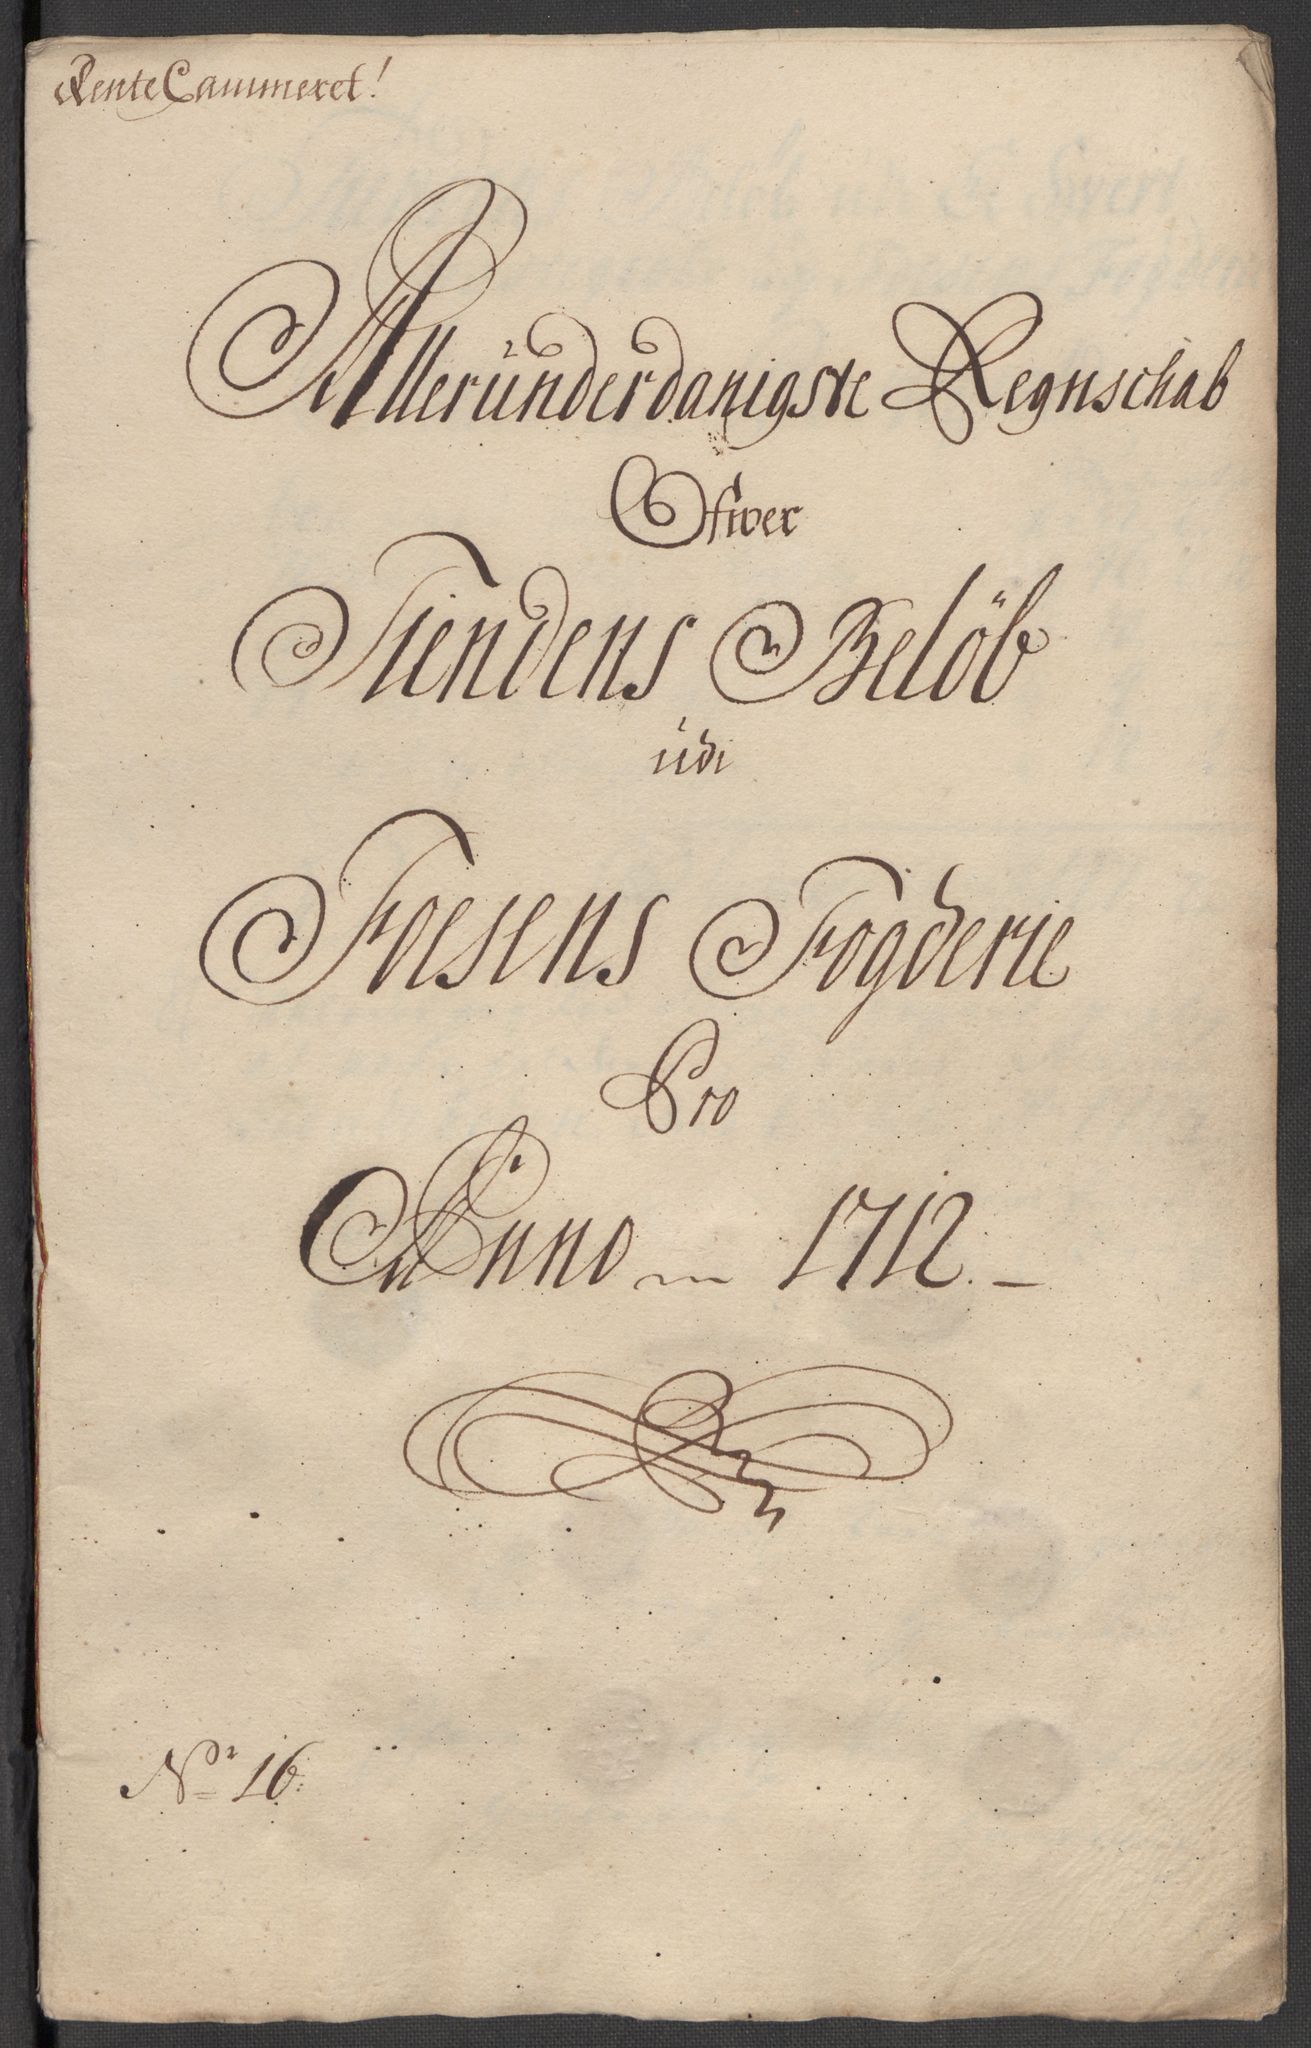 RenteCammeret!
Alleründerdanigste Regnschab
Ofwer
Tiendens Belöb
udi
Foesens Fogderie
Pro
Anno 1712.
No 16.